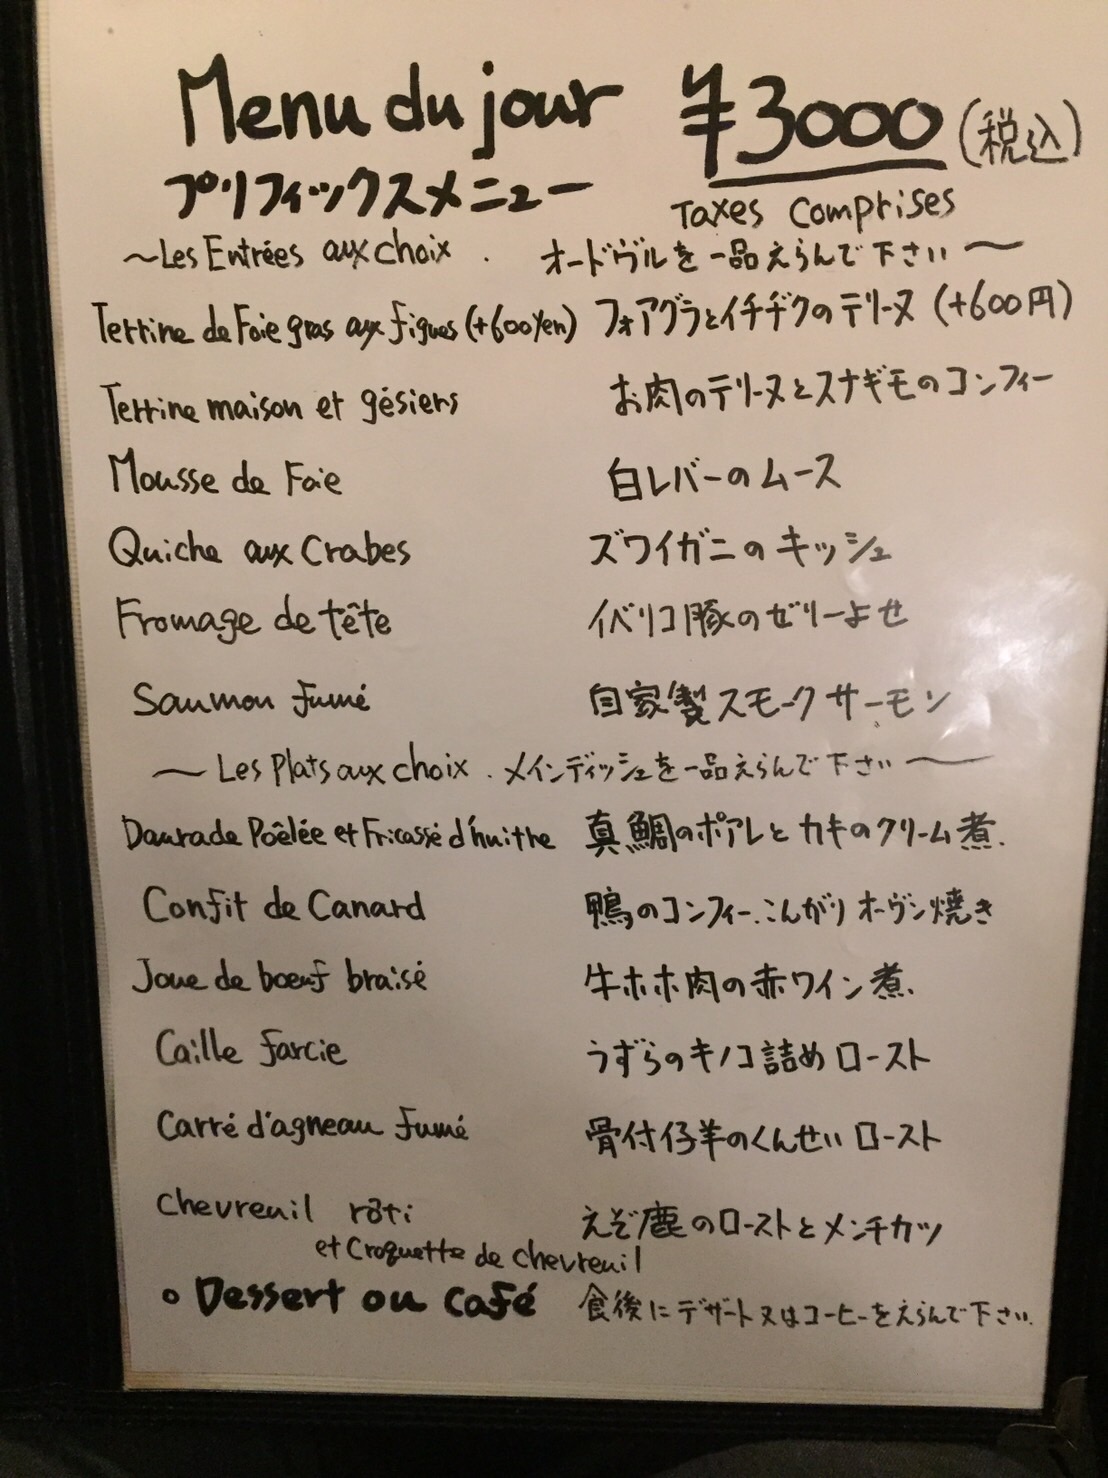 Menu du jour ¥3000 (税込)
プリフィックスメニュー Taxes comprises
〜Les Entrées aux choix . オードヴルを一品えらんで下さい〜
Terrine de Foie gras aux figues (+600Yen) フォアグラとイチヂクのテリーヌ (+600円)
Terrine maison et gésiers お肉のテリーヌとスナギモのコンフィー
Mousse de Foie 白レバーのムース
Quiche aux Crabes ズワイガニのキッシュ
Fromage de tête イベリコ豚のゼリーよせ
Saumon fumé 自家製スモークサーモン
〜Les Plats aux choix . メインディッシュを一品えらんで下さい〜
Daurade Poêlée et Fricassé d'huitre 真鯛のポアレとカキのクリーム煮.
Confit de Canard 鴨のコンフィー、こんがりオーヴン焼き
Joue de bœuf braisé 牛ホホ肉の赤ワイン煮.
Caille farcie うずらのキノコ詰めロースト
Carré d'agneau fumé 骨付仔羊のくんせいロースト
Chevreuil rôti えぞ鹿のローストとメンチカツ
et Croquette de chevreuil
○ Dessert ou café 食後にデザート又はコーヒーをえらんで下さい.